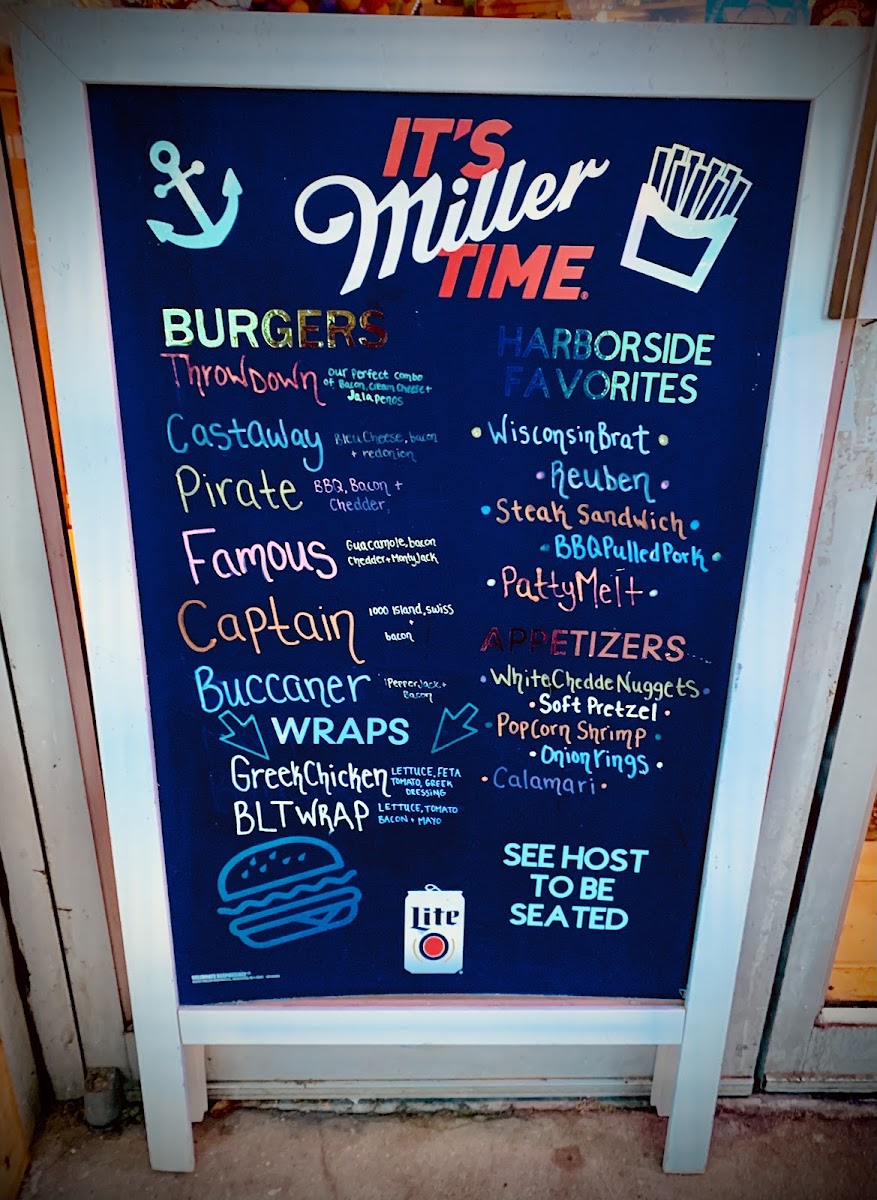 IT'S
Miller
TIME
BURGERS
Throwdown our perfect combo
of Bacon, Cream Cheese +
Jalapenos
Castaway Bleu Cheese, bacon
+ redonion
Pirate BBQ, Bacon +
Chedder
Famous Guacamole, bacon
Chedder + Monty Jack
Captain 1000 Island, swiss
+
bacon
Buccaner Pepper Jack +
Bacon
WRAPS
GreekChicken LETTUCE, FETA
TOMATO, GREEK
DRESSING
BLT WRAP LETTUCE, TOMATO
BACON + MAYO
HARBORSIDE
FAVORITES
• Wisconsin Brat •
• Reuben •
• Steak Sandwich •
• BBQ Pulled Pork •
• Patty Melt •
APPETIZERS
• White Chedde Nuggets •
• Soft Pretzel •
• PopCorn Shrimp •
• Onion rings •
• Calamari •
SEE HOST
TO BE
SEATED
Lite